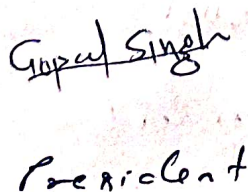 Gopal Singh
President